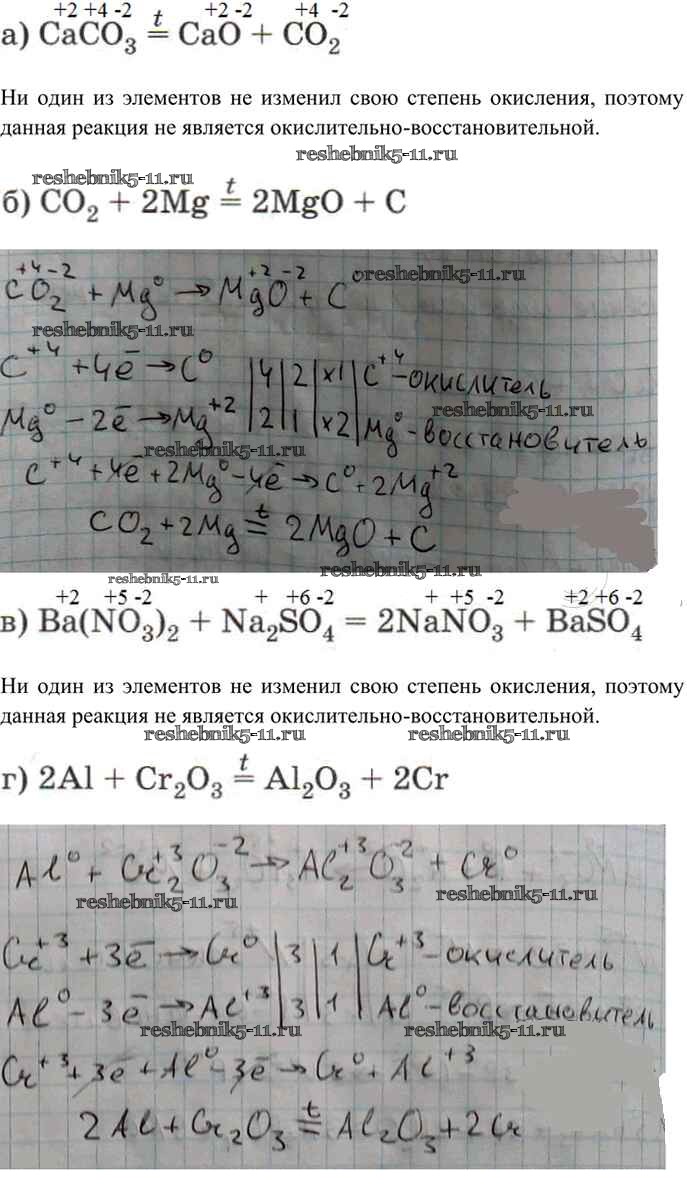 +2 +4 -2 t +2 -2 +4 -2
а) CaCO₃ = CaO + CO₂
Ни один из элементов не изменил свою степень окисления, поэтому
данная реакция не является окислительно-восстановительной.
reshebnik5-11.ru
reshebnik5-11.ru
б) CO₂ + 2Mg =ᵗ 2MgO + C
+4 -2 +2 -2
CO₂ + Mg⁰ → MgO + C⁰
reshebnik5-11.ru
reshebnik5-11.ru
C⁺⁴ + 4ē → C⁰ |4|2|×1| C⁺⁴ - окислитель
reshebnik5-11.ru
Mg⁰ - 2ē → Mg⁺² |2|1|×2| Mg⁰ - восстановитель
reshebnik5-11.ru
C⁺⁴ + 4ē + 2Mg⁰ - 4ē → C⁰ + 2Mg⁺²
CO₂ + 2Mg =ᵗ 2MgO + C
reshebnik5-11.ru
reshebnik5-11.ru
+2 +5 -2 + +6 -2 + +5 -2 +2 +6 -2
в) Ba(NO₃)₂ + Na₂SO₄ = 2NaNO₃ + BaSO₄
Ни один из элементов не изменил свою степень окисления, поэтому
данная реакция не является окислительно-восстановительной.
reshebnik5-11.ru reshebnik5-11.ru
г) 2Al + Cr₂O₃ =ᵗ Al₂O₃ + 2Cr
Al⁰ + Cr₂⁺³O₃⁻² → Al₂⁺³O₃⁻² + Cr⁰
reshebnik5-11.ru reshebnik5-11.ru
Cr⁺³ + 3ē → Cr⁰ |3|1| Cr⁺³ - окислитель
Al⁰ - 3ē → Al⁺³ |3|1| Al⁰ - восстановитель
reshebnik5-11.ru reshebnik5-11.ru
Cr⁺³ + 3ē + Al⁰ - 3ē → Cr⁰ + Al⁺³
2Al + Cr₂O₃ =ᵗ Al₂O₃ + 2Cr